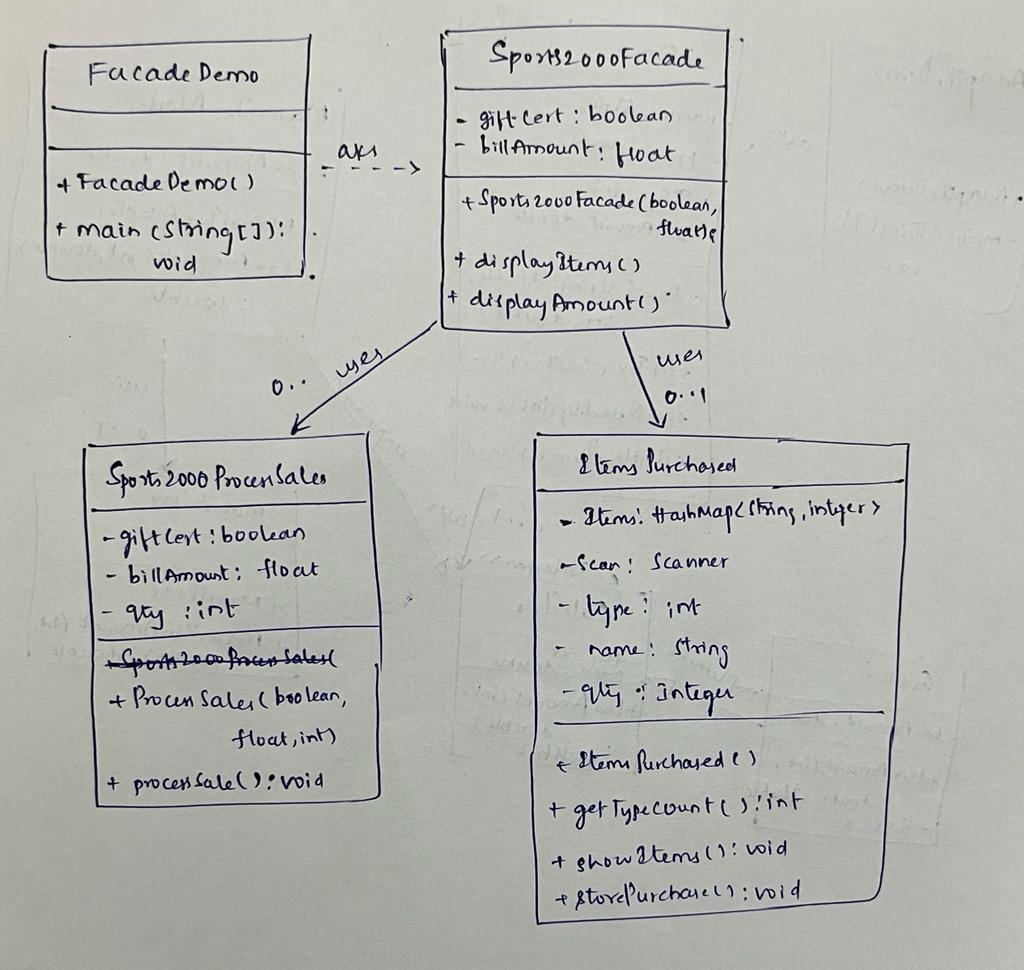 FacadeDemo
+ FacadeDemo()
+ main (String[]):
void
Sports2000Facade
- giftCert : boolean
- billAmount : float
+ Sports2000Facade(boolean,
float)
+ displayItems()
+ displayAmount()
uses
0..
uses
0..1
Sports2000ProcessSales
- giftCert : boolean
- billAmount : float
- qty : int
+ Sports2000ProcessSales(
+ ProcessSales (boolean,
float, int)
+ processSale() : void
ItemsPurchased
- Items: HashMap<String, integer>
- Scan : Scanner
- type : int
- name : String
- qty : Integer
+ ItemsPurchased()
+ getTypeCount() : int
+ showItems() : void
+ storePurchase() : void